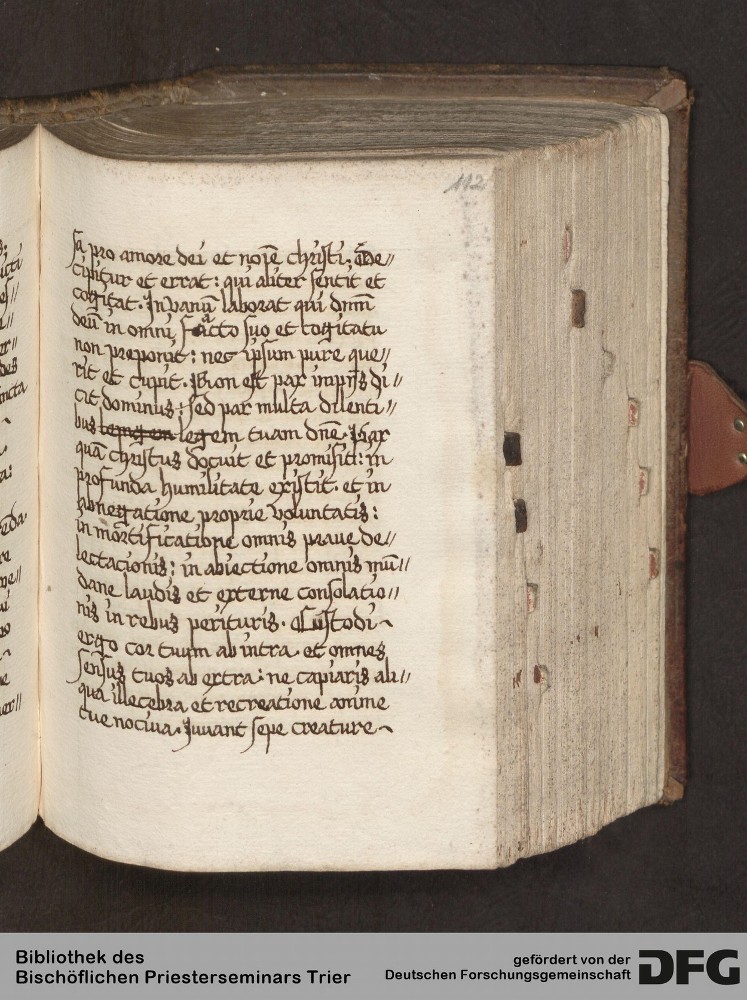 112
sa pro amore dei et noīe christi; De//
cipitur et errat: qui aliter sentit et
cogitat. In vanū laborat qui dnm̄
deū in omni facto suo et cogitatu
non preponit: nec ipsum pure que//
rit et cupit. Non est pax impijs di//
cit dominus: sed pax multa diligenti//
bus legem tuam dnē. Hec pax
quā christus docuit et promisit: in
profunda humilitate existit. et in
abnegatione proprie voluntatis:
in mortificatione omnis praue de//
lectacionis: in abiectione omnis mū//
dane laudis et externe consolatio//
nis in rebus perituris. Custodi
ergo cor tuum ab intra. et omnes
sensus tuos ab extra: ne capiaris ali//
qua illecebra et recreatione anime
tue nociua. Juuant sepe creature
Bibliothek des
Bischöflichen Priesterseminars Trier
gefördert von der
Deutschen Forschungsgemeinschaft
DFG